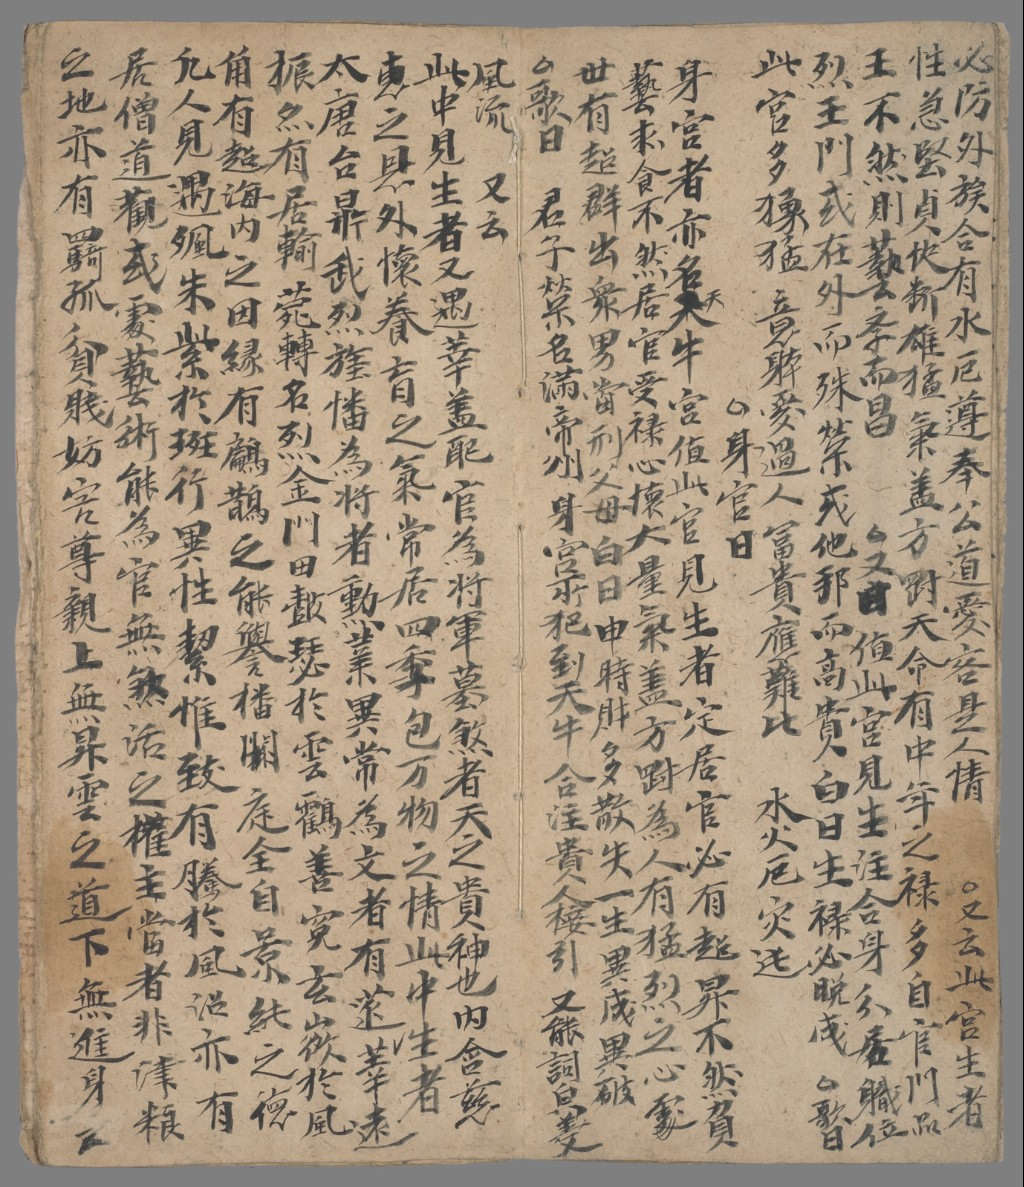 必防外族合有水厄遵奉公道愛容是人情　○又云此宮生者
性急堅貞快断雄猛氣盖方對天命有中年之禄多自官門品
王不然則藝立孝而昌　○又曰值此宮見生注合身分居職位
烈王門或在外而殊榮或他邦而高貴白日生禄必晚成○歌曰
此宮多㺒猛　意辞愛過人　富貴应難比　水火厄灾迍
○身宮曰
身宮者亦名天牛宮值此宮見生者定居官必有超昇不然負
藝求食不然居官受禄心懷大量氣盖方對為人有猛烈之心處
世有超群出衆男當刑父母白日申時財多散失一生異成異破
○歌曰　君子榮名滿帝州身宮所犯到天牛合注貴人接引　又能詞
風流　又云
此中見生者又遇莘盖配官為將軍墓煞者天之貴神也內含慈
惠之恩外懷養育之氣常居四季包万物之情此中生者
太唐台鼎武烈旌幡為將者勳業異常為文者有蓮莘遠
振然有居輸苑轉名烈金門田皷瑟於雲霸善寬玄嶽於風
角有超海內之因緣有鸕鵲之能譽播關庭全自景純之德
凢人見遇颯朱紫於班行異性絜惟致有騰於風沼亦有
居僧道觀或處藝術能為官無煞活之權主當者非津粮
之地亦有四騎孤貧賤妨害尊親上無昇雲之道下無進身